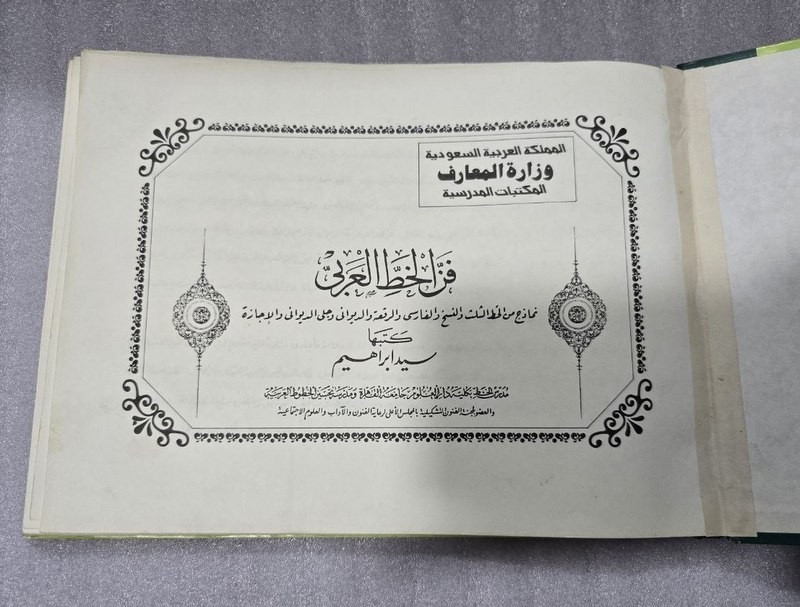 المملكة العربية السعودية
وزارة المعارف
المكتبات المدرسية
فن الخط العربي
نماذج من الخط الثلث والنسخ والفارسى والرقعة والديوانى وجلى الديوانى والإجازة
كتبها
سيد ابراهيم
مدرس الخط بكلية دار العلوم جامعة القاهرة ومدرسة تحسين الخطوط العربية
والعضو بلجنة الفنون التشكيلية بالمجلس الأعلى لرعاية الفنون والآداب والعلوم الاجتماعية